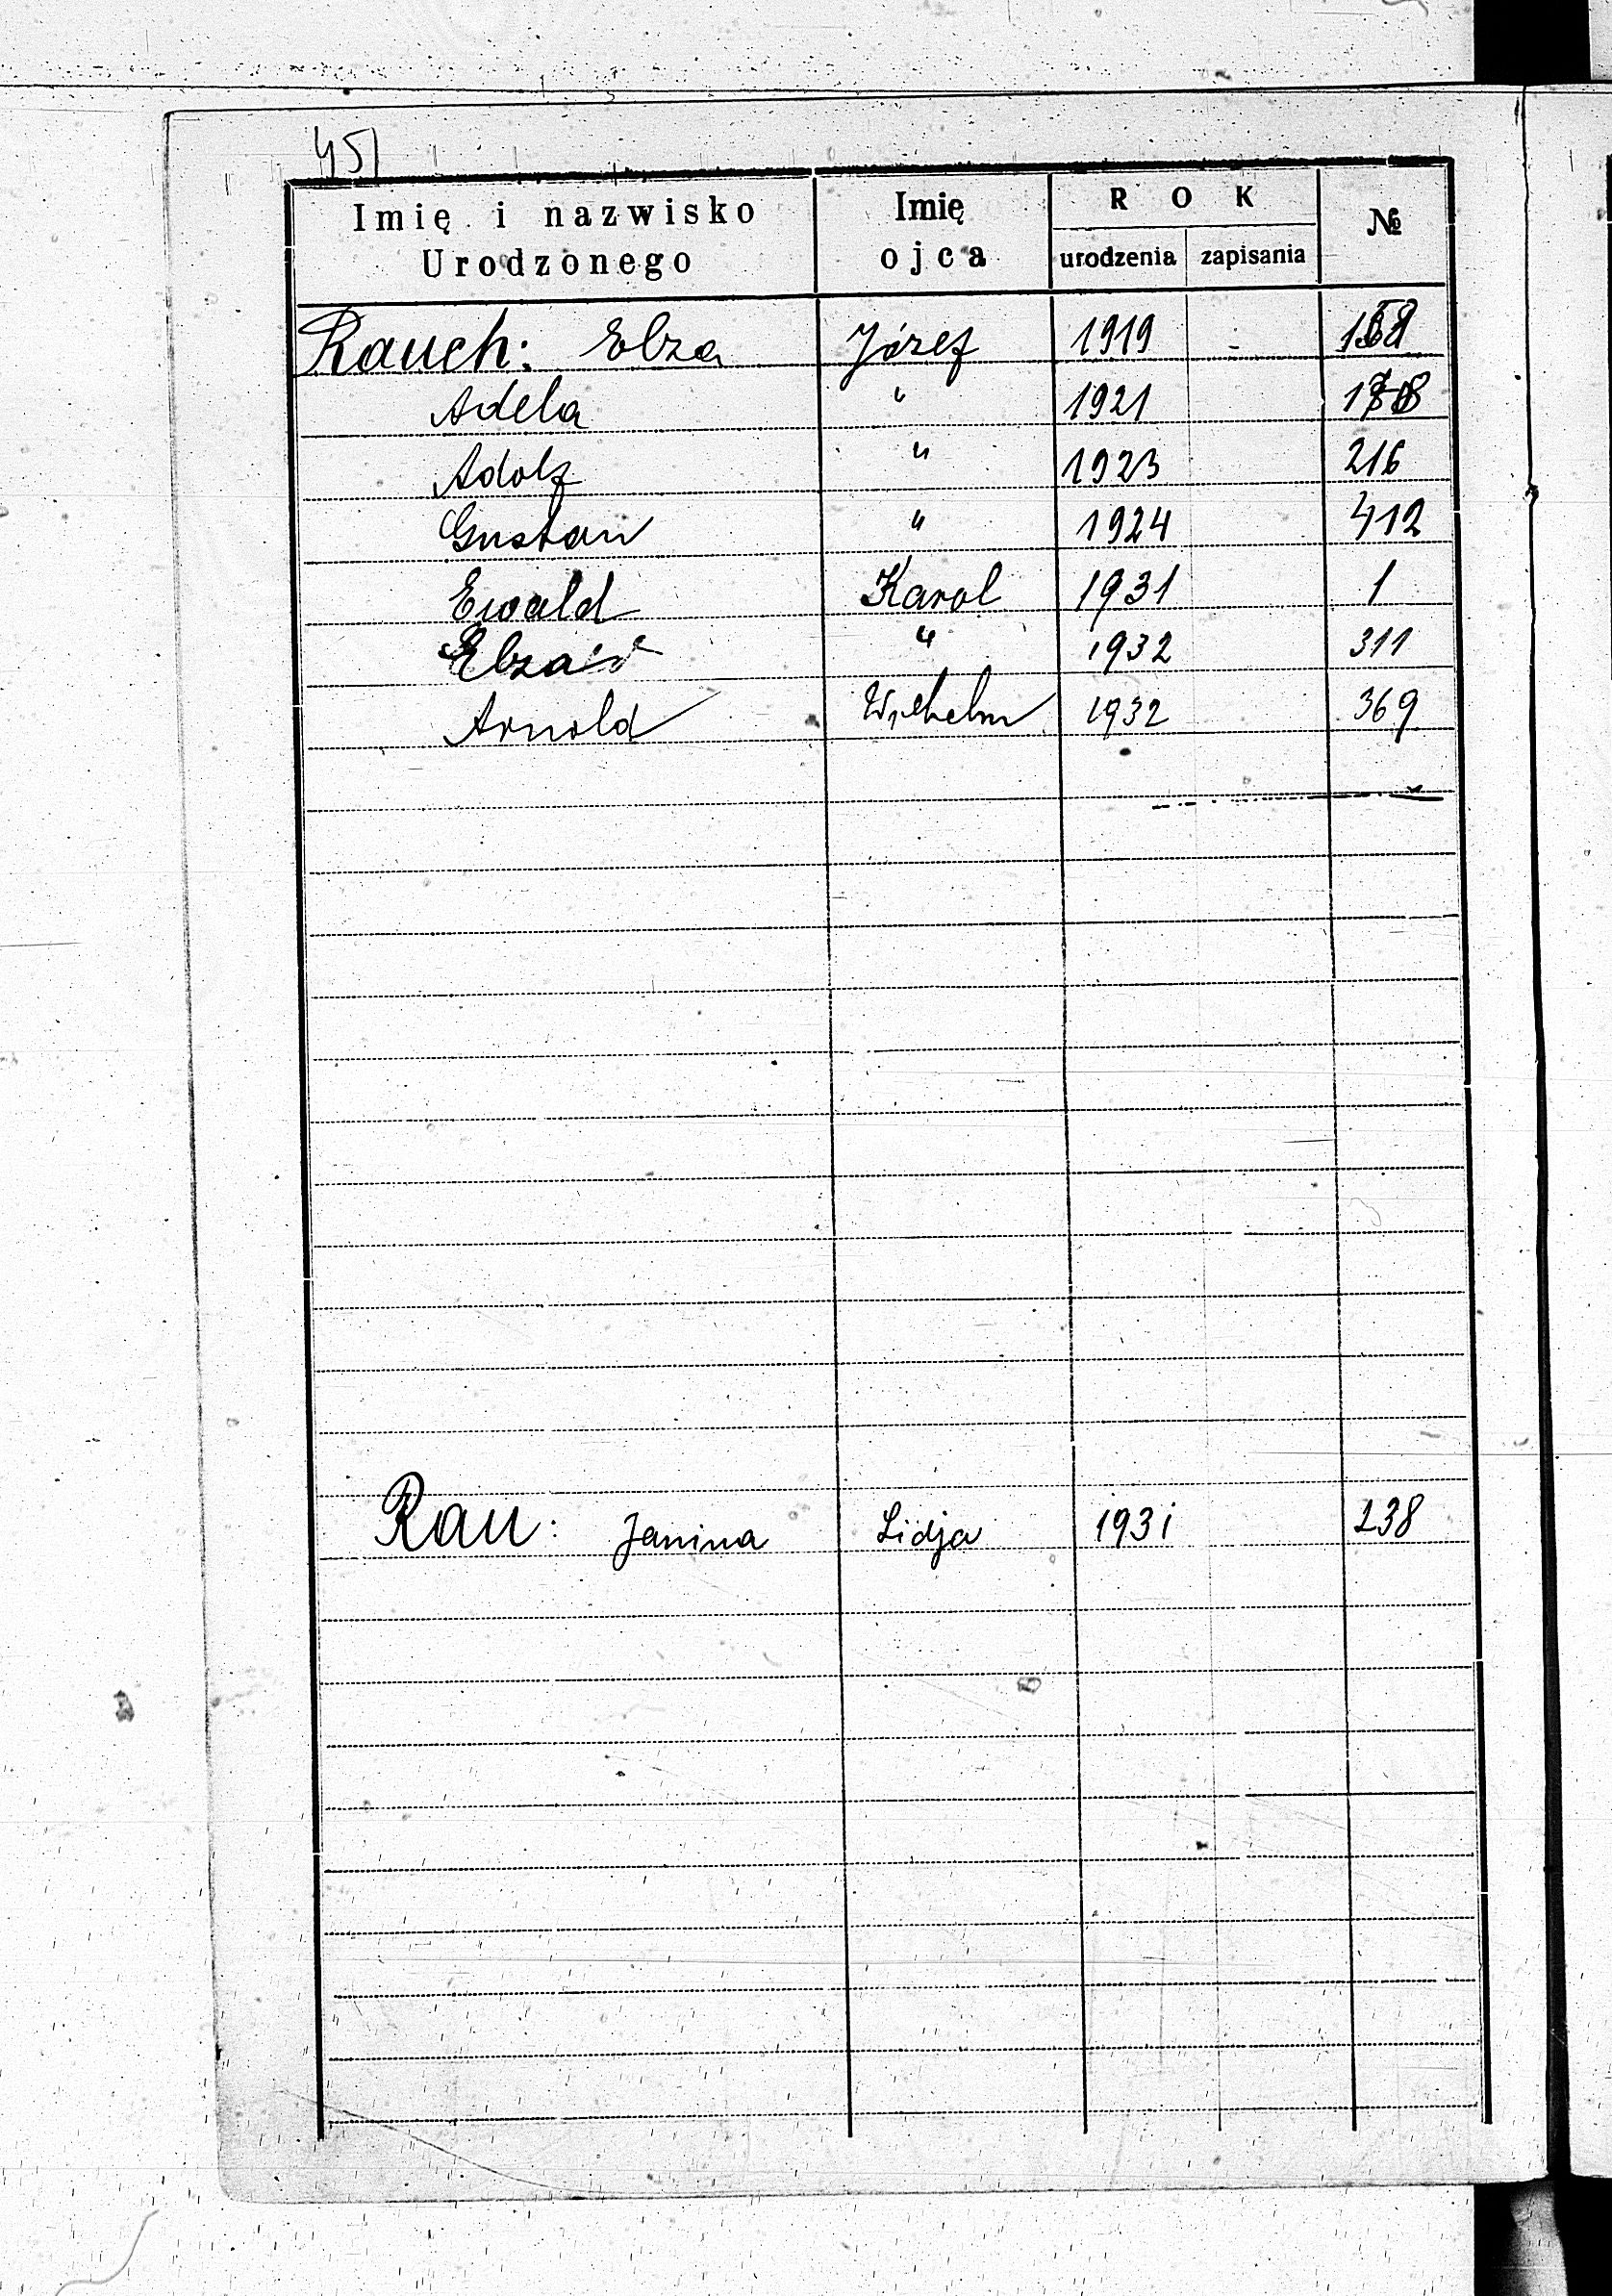 451
Imię i nazwisko Urodzonego Imię ojca ROK urodzenia zapisania №
Rauch: Elza Józef 1919 -
Adela " 1921
Adolf " 1923 216
Gustaw " 1924 412
Ewald Karol 1931 1
Elza " 1932 311
Arnold Wilhelm 1932 369
Rau: Janina Lidja 1931 238